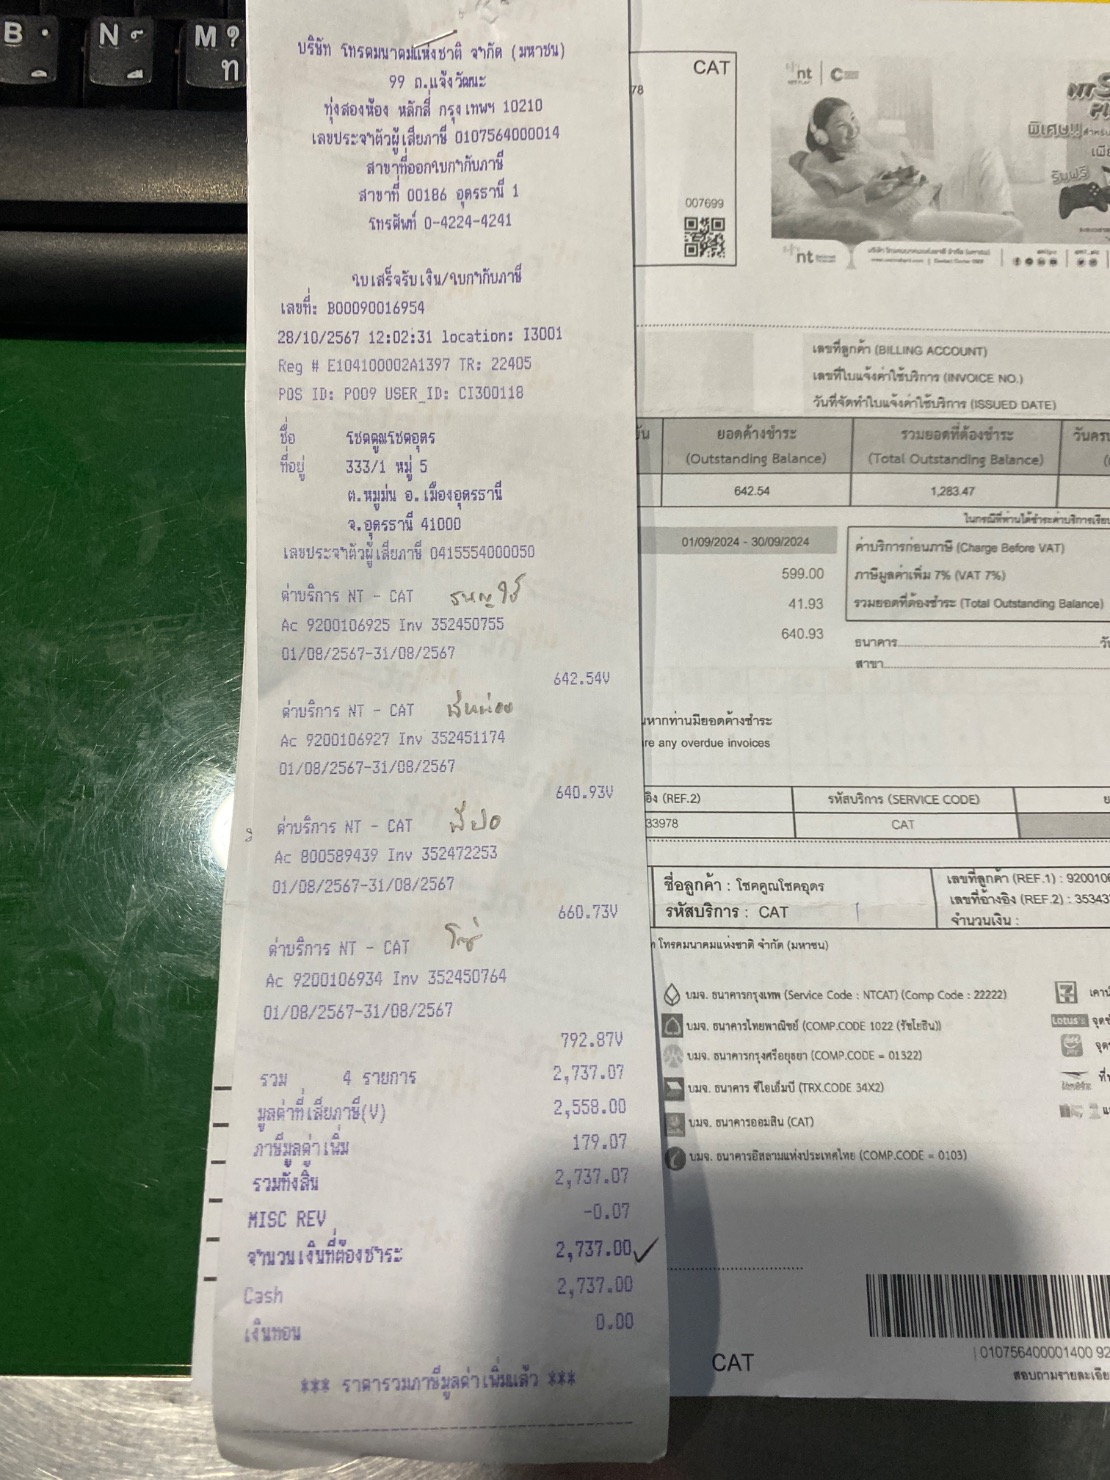 บริษัท โทรคมนาคมแห่งชาติ จำกัด (มหาชน)
99 ถ.แจ้งวัฒนะ
ทุ่งสองห้อง หลักสี่ กรุงเทพฯ 10210
เลขประจำตัวผู้เสียภาษี 0107564000014
สาขาที่ออกใบกำกับภาษี
สาขาที่ 00186 อุดรธานี 1
โทรศัพท์ 0-4224-4241
ใบเสร็จรับเงิน/ใบกำกับภาษี
เลขที่: B00090016954
28/10/2567 12:02:31 location: I3001
Reg # E104100002A1397 TR: 22405
POS ID: P009 USER_ID: CI300118
ชื่อ โชคคูณโชคอุดร
ที่อยู่ 333/1 หมู่ 5
ต.หมูม่น อ.เมืองอุดรธานี
จ.อุดรธานี 41000
เลขประจำตัวผู้เสียภาษี 0415554000050
ค่าบริการ NT - CAT
Ac 9200106925 Inv 352450755
01/08/2567-31/08/2567
642.54V
ค่าบริการ NT - CAT
Ac 9200106927 Inv 352451174
01/08/2567-31/08/2567
640.93V
ค่าบริการ NT - CAT
Ac 800589439 Inv 352472253
01/08/2567-31/08/2567
660.73V
ค่าบริการ NT - CAT
Ac 9200106934 Inv 352450764
01/08/2567-31/08/2567
792.87V
รวม 4 รายการ 2,737.07
มูลค่าที่เสียภาษี(V) 2,558.00
ภาษีมูลค่าเพิ่ม 179.07
รวมทั้งสิ้น 2,737.07
MISC REV -0.07
จำนวนเงินที่ต้องชำระ 2,737.00
Cash 2,737.00
เงินทอน 0.00
*** ราคารวมภาษีมูลค่าเพิ่มแล้ว ***
B N M ท
CAT
78
007699
nt
พิเศษ!!
รับฟรี
nt
เลขที่ลูกค้า (BILLING ACCOUNT)
เลขที่ใบแจ้งค่าใช้บริการ (INVOICE NO.)
วันที่จัดทำใบแจ้งค่าใช้บริการ (ISSUED DATE)
ยอดค้างชำระ รวมยอดที่ต้องชำระ
(Outstanding Balance) (Total Outstanding Balance)
642.54 1,283.47
01/09/2024 - 30/09/2024
599.00
41.93
640.93
ค่าบริการก่อนภาษี (Charge Before VAT)
ภาษีมูลค่าเพิ่ม 7% (VAT 7%)
รวมยอดที่ต้องชำระ (Total Outstanding Balance)
ธนาคาร
สาขา
หากท่านมียอดค้างชำระ
re any overdue invoices
อิง (REF.2) รหัสบริการ (SERVICE CODE)
33978 CAT
ชื่อลูกค้า : โชคคูณโชคอุดร
รหัสบริการ : CAT
เลขที่ลูกค้า (REF.1) : 920010
เลขที่อ้างอิง (REF.2) : 35343
จำนวนเงิน :
โทรคมนาคมแห่งชาติ จำกัด (มหาชน)
บมจ. ธนาคารกรุงเทพ (Service Code : NTCAT) (Comp Code : 22222)
บมจ. ธนาคารไทยพาณิชย์ (COMP.CODE 1022 (รัชโยธิน))
บมจ. ธนาคารกรุงศรีอยุธยา (COMP.CODE = 01322)
บมจ. ธนาคาร ซีไอเอ็มบี (TRX.CODE 34X2)
บมจ. ธนาคารออมสิน (CAT)
บมจ. ธนาคารอิสลามแห่งประเทศไทย (COMP.CODE = 0103)
Lotus's
CAT
010756400001400 92